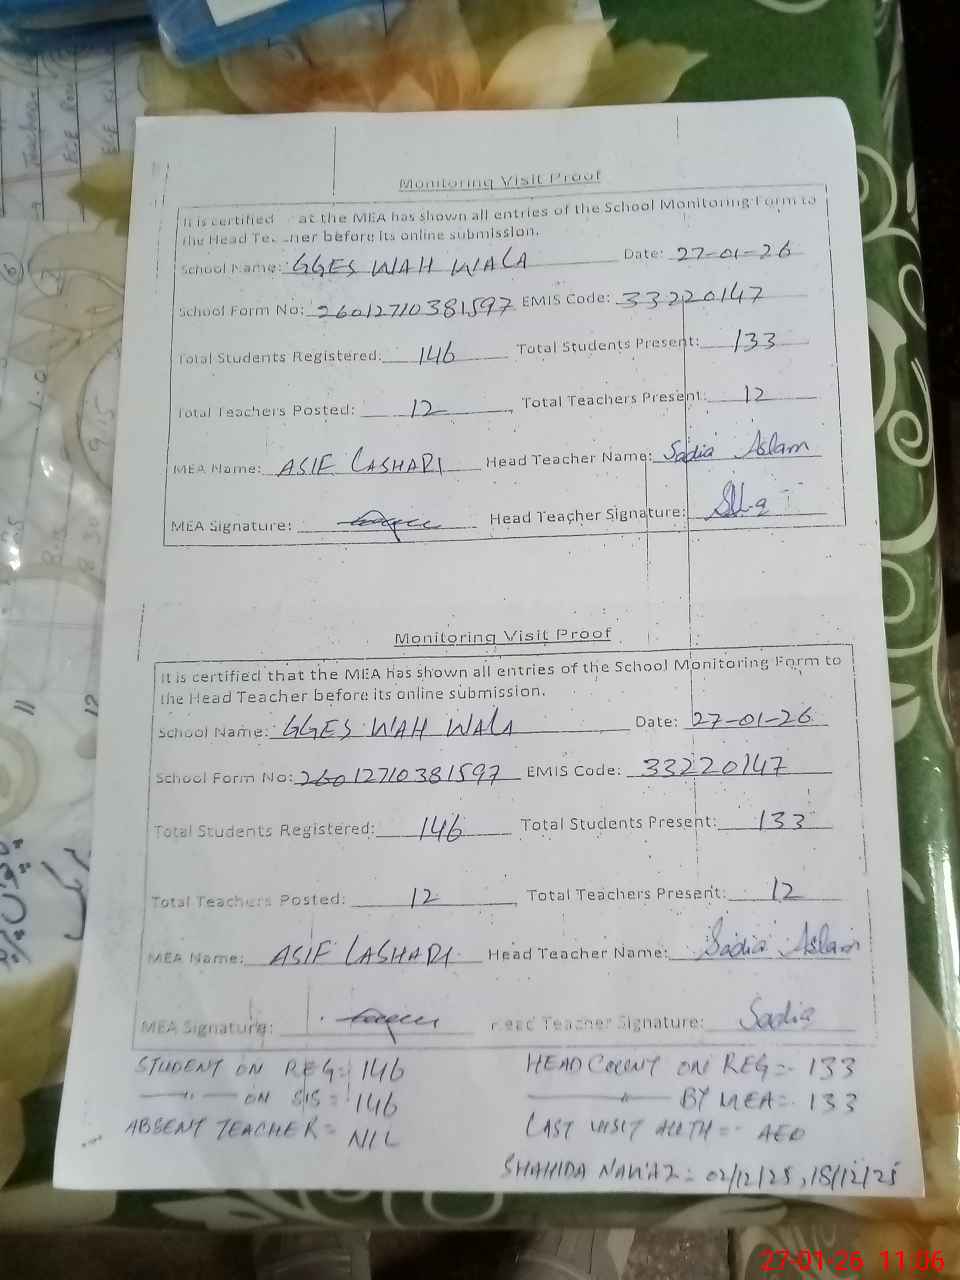 Monitoring Visit Proof
It is certified at the MEA has shown all entries of the School Monitoring Form to
the Head Te her before its online submission.
School Name: GGES WAH WALA Date: 27-01-26
School Form No: 2601271038159 7 EMIS Code: 33220147
Total Students Registered: 146 Total Students Present: 133
Total Teachers Posted: 12, Total Teachers Present: 12
MEA Name: ASIF LASHARI Head Teacher Name: Sadia Aslam
MEA Signature: Head Teacher Signature:
Monitoring Visit Proof
It is certified that the MEA has shown all entries of the School Monitoring Form to
the Head Teacher before its online submission.
School Name: GGES WAH WALA Date: 27-01-26
School Form No: 26012710381597 EMIS Code: 33220147
Total Students Registered: 146 Total Students Present: 133
Total Teachers Posted: 12, Total Teachers Present: 12
MEA Name: ASIF LASHARI Head Teacher Name: Sadia Aslam
MEA Signature: Head Teacher Signature: Sadia
STUDENT ON REG= 146 HEAD COUNT ON REG=- 133
—"— ON SIS= 146 —"— BY MEA=- 133
ABSENT TEACHER= NIL LAST VISIT AUTH=- AEO
SHAHIDA NAWAZ= 02/12/25, 18/12/25
27-01-26 11:06